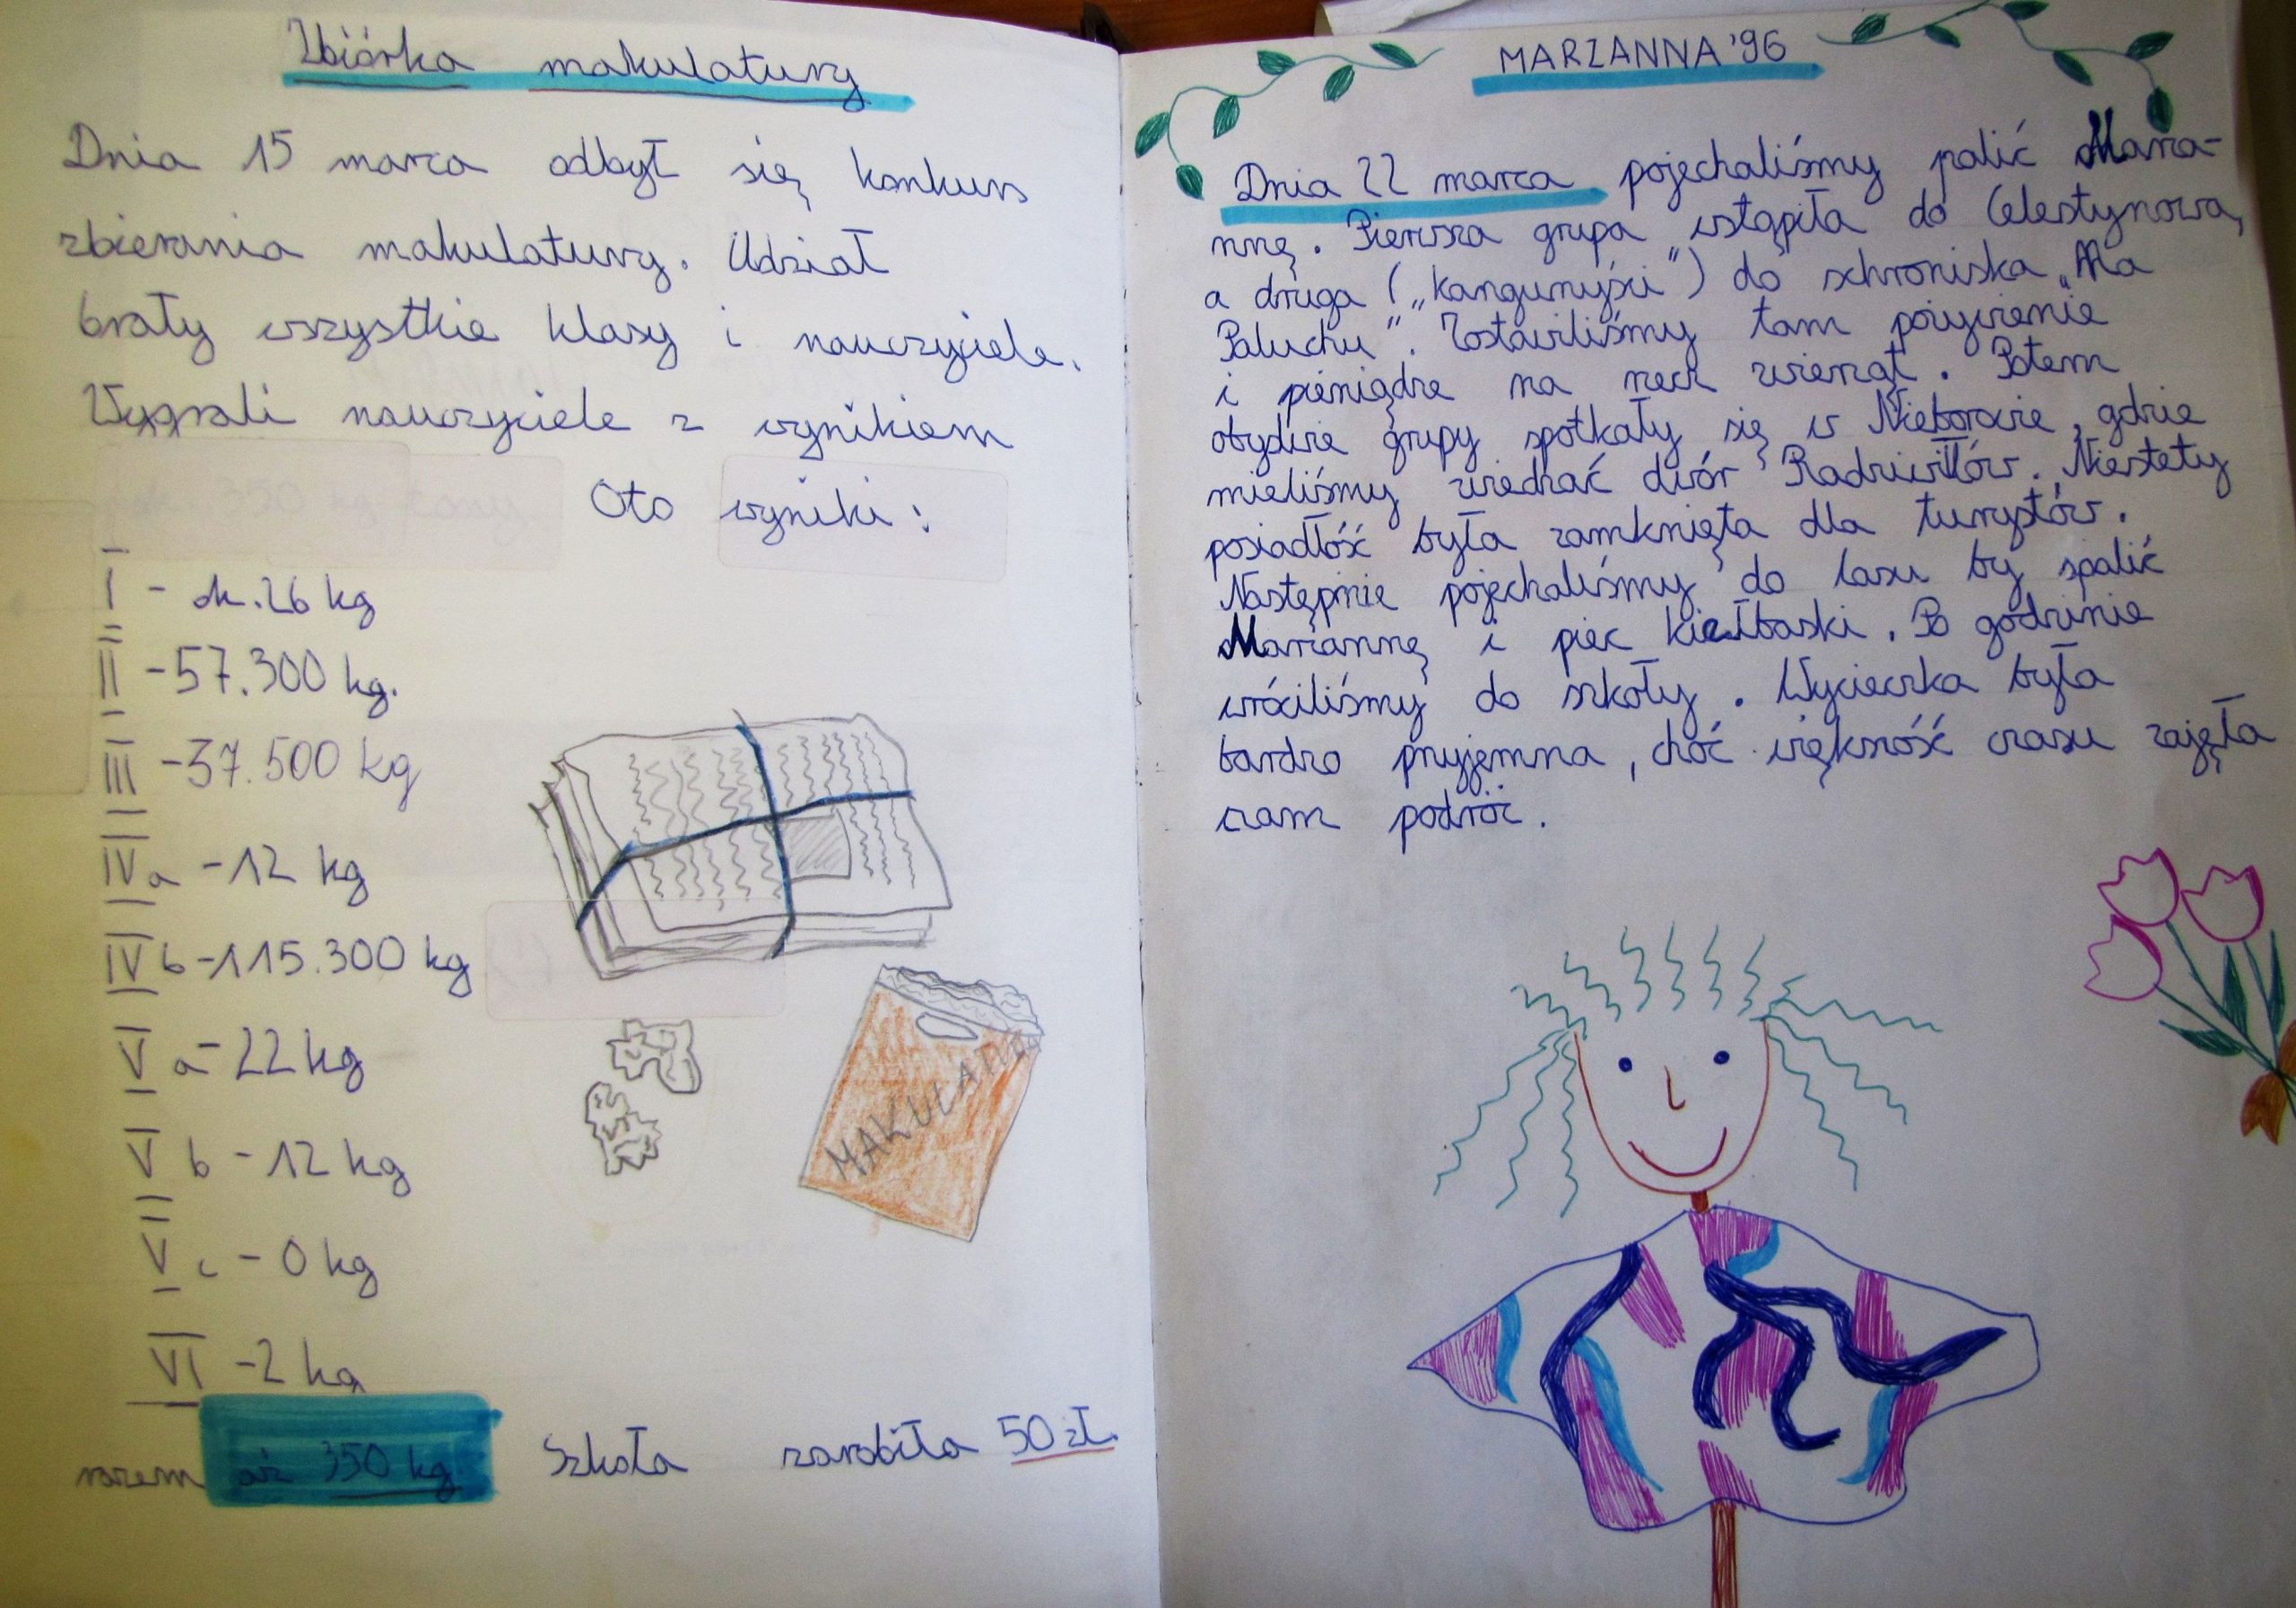 Zbiórka makulatury
Dnia 15 marca odbył się konkurs
zbierania makulatury. Udział
brały wszystkie klasy i nauczyciele.
Wygrali nauczyciele z wynikiem
ok. 350 kg
Oto wyniki:
I - ok. 26 kg
II - 57.300 kg.
III - 37.500 kg
IV a - 12 kg
IV b - 115.300 kg
V a - 22 kg
V b - 12 kg
V c - 0 kg
VI - 2 kg
razem aż 350 kg. Szkoła zarobiła 50 zł.
MAKULATURA
MARZANNA '96
Dnia 22 marca pojechaliśmy palić Marza-
nnę. Pierwsza grupa wstąpiła do Celestynowa,
a druga („Kangurzyści") do schroniska „Na
Paluchu". Zostawiliśmy tam pożywienie
i pieniądze na rzecz zwierząt. Potem
obydwie grupy spotkały się w Nieborowie, gdzie
mieliśmy zwiedzać dwór Radziwiłłów. Niestety
posiadłość była zamknięta dla turystów.
Następnie pojechaliśmy do lasu by spalić
Marzannę i piec kiełbaski. Po godzinie
wróciliśmy do szkoły. Wycieczka była
bardzo przyjemna, choć większość czasu zajęła
nam podróż.